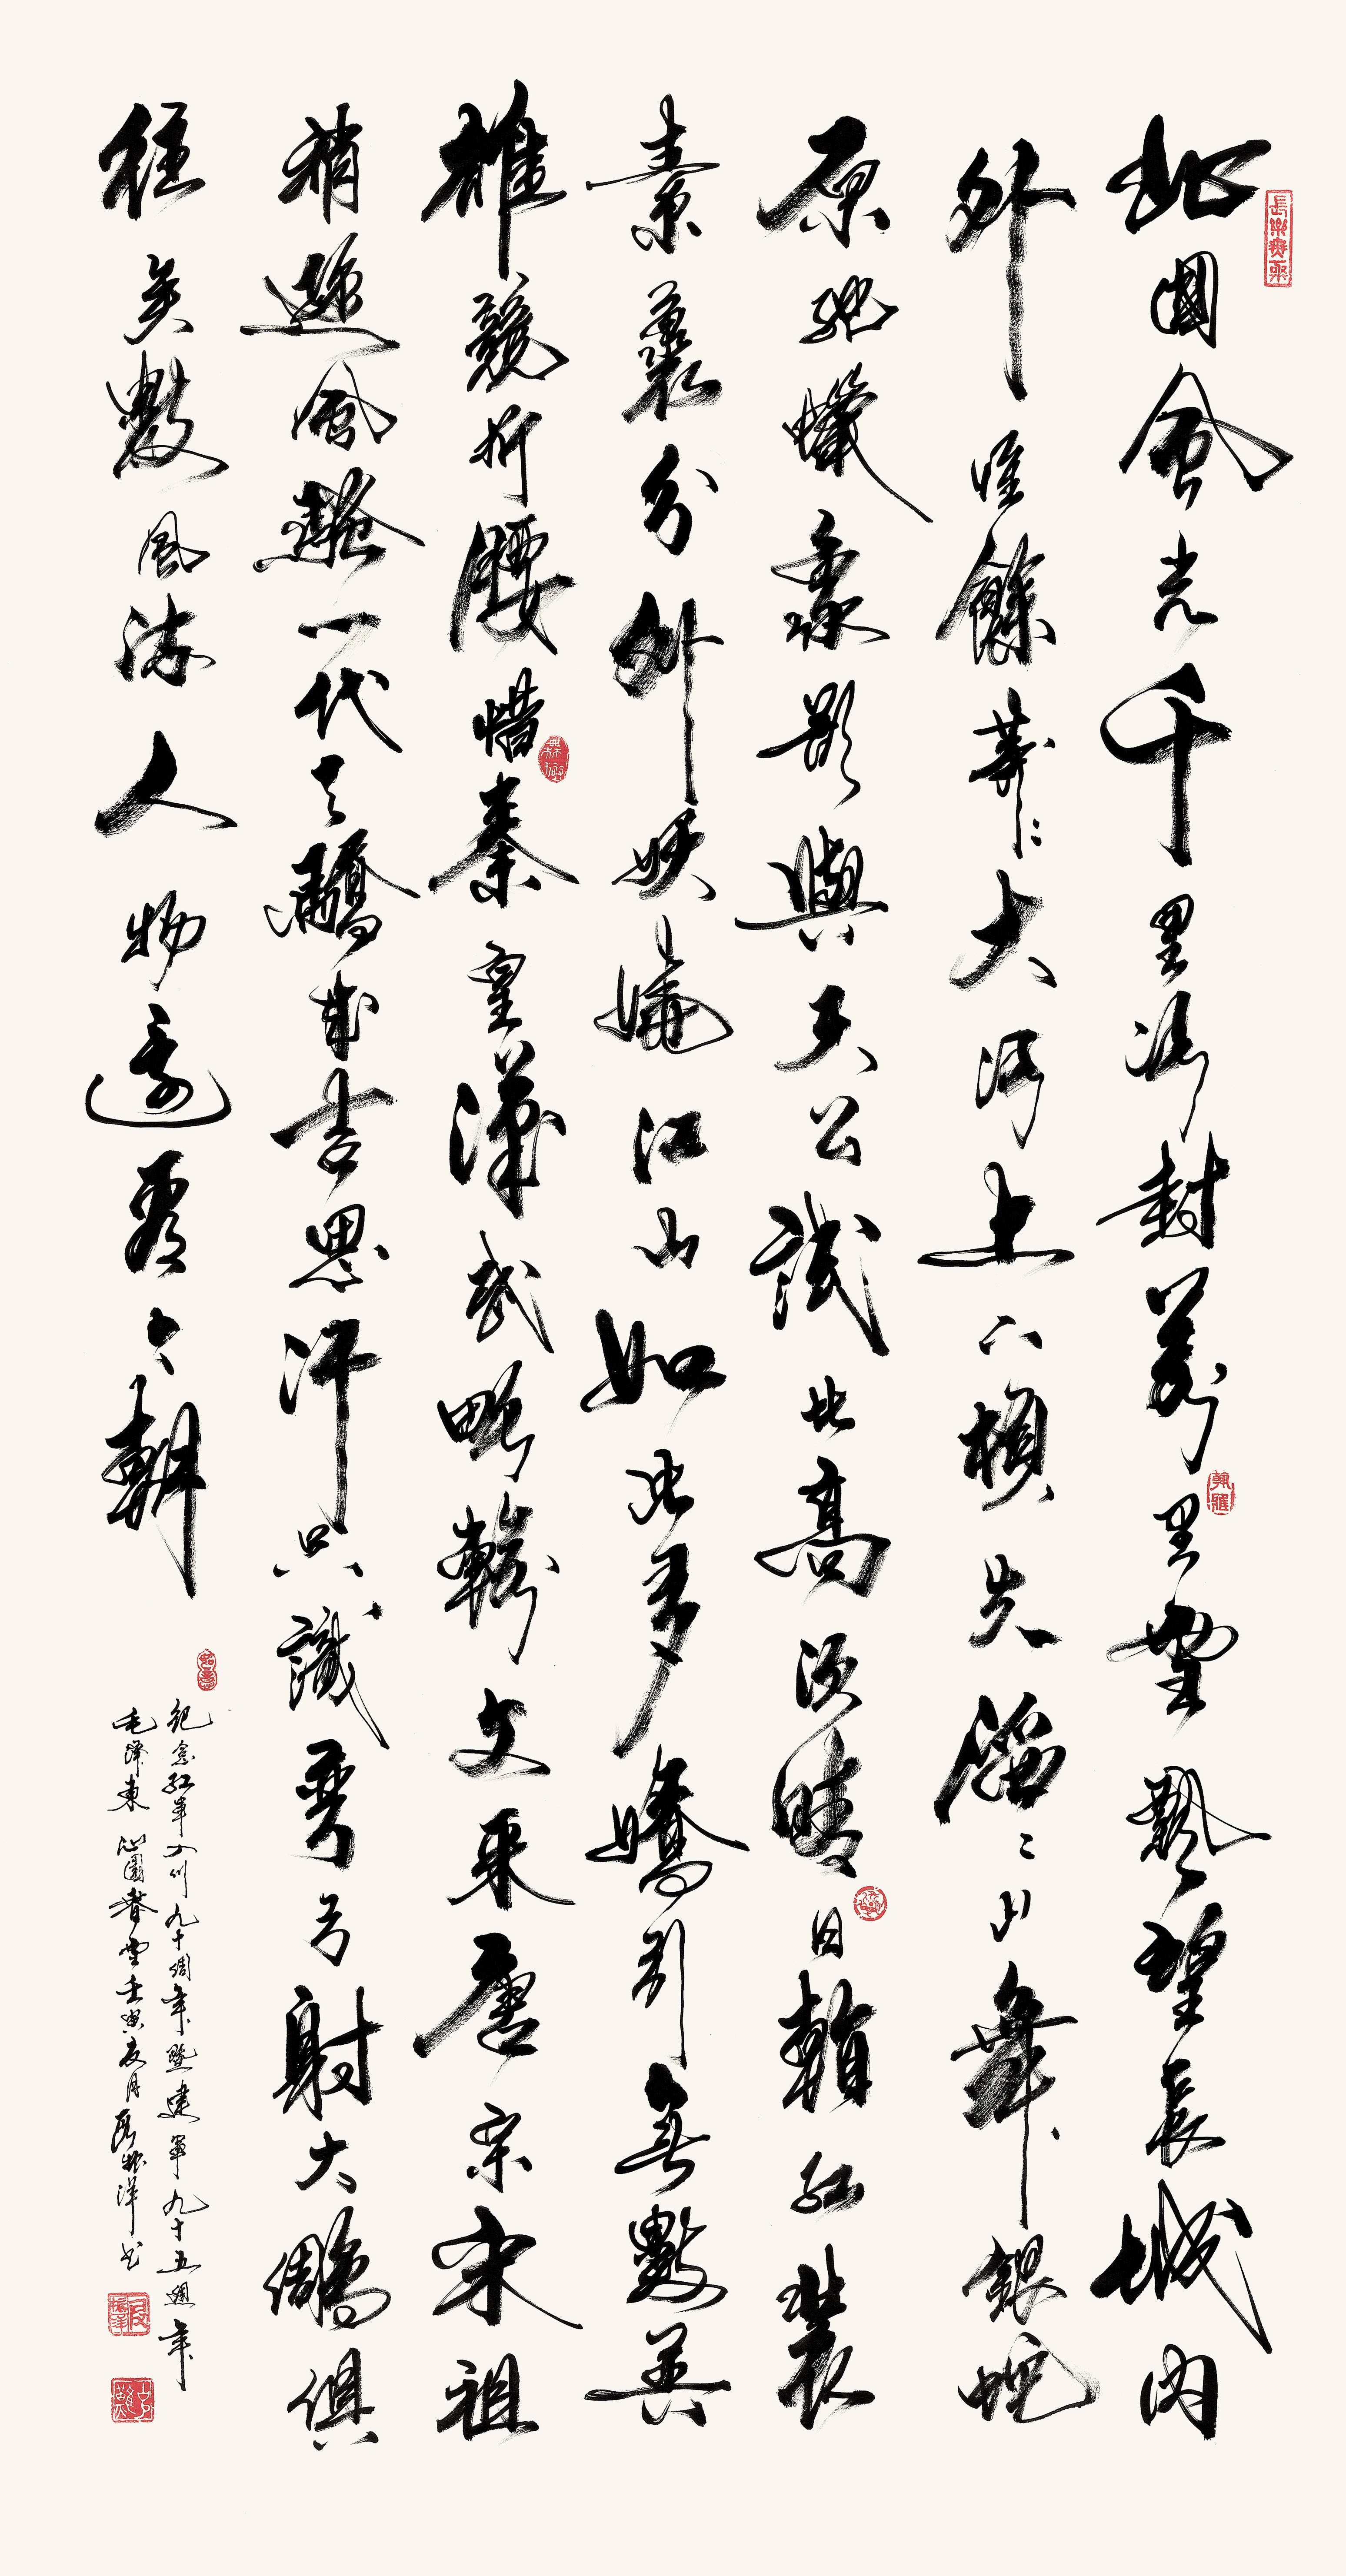 北國風光千里冰封萬里雪飄望長城內
外惟餘莽〻大河上下頓失滔〻山舞銀蛇
原馳蠟象欲與天公試比高須晴日看紅裝
素裹分外妖嬈江山如此多嬌引無數英
雄競折腰惜秦皇漢武略輸文采唐宗宋祖
稍遜風騷一代天驕成吉思汗只識彎弓射大鵰俱
往矣數風流人物還看今朝
紀念紅軍入川九十周年暨建軍九十五週年
毛澤東沁園春雪壬寅夏月 振洋书